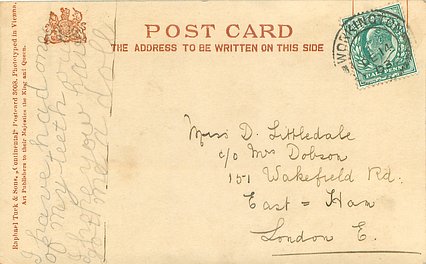 POST CARD
THE ADDRESS TO BE WRITTEN ON THIS SIDE
WORKINGTON
Miss D. Littledale
c/o Mrs Dobson
151 Wakefield Rd.
East = Ham
London E.
I have had one
of my teeth out
hope you
Raphael Tuck & Sons, "Continental" Postcard 3008. Phototyped in Vienna.
Art Publishers to their Majesties the King and Queen.